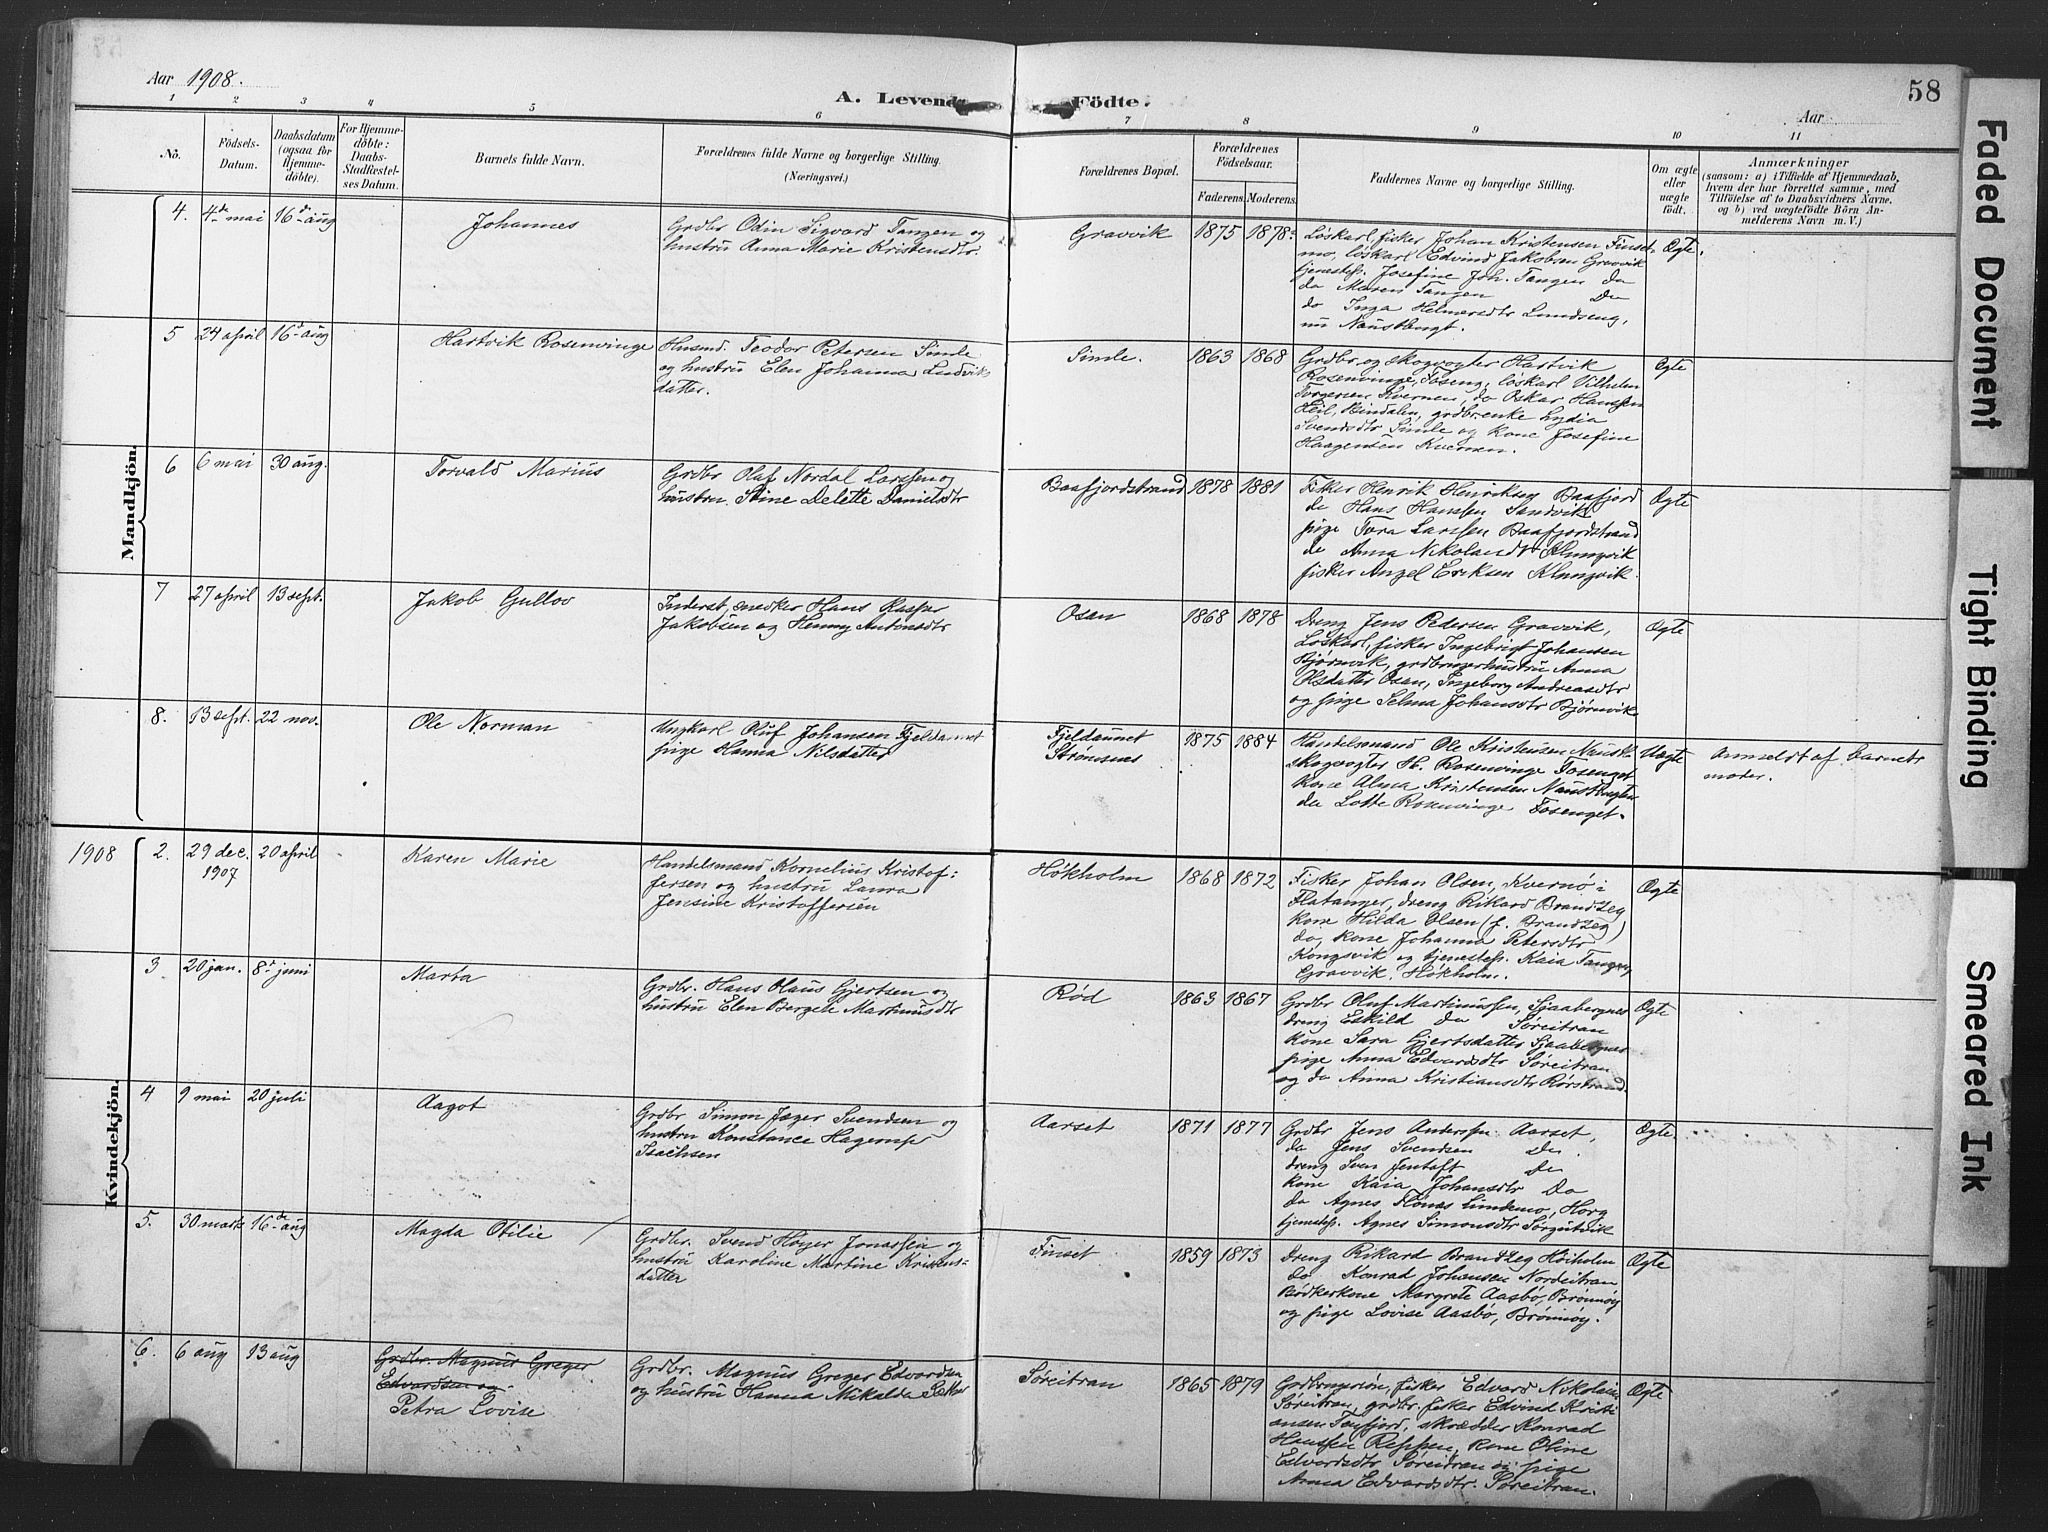 Aar 1908.
A. Levende Födte.
58
Aar
1 2 3 4 5 6 7 8 9 10 11
No.
Födsels-
Datum.
Daabsdatum
(ogsaa for
Hjemme-
döbte).
For Hjemme-
döbte:
Daabs-
Stadfæstel-
ses Datum.
Barnets fulde Navn.
Forældrenes fulde Navne og borgerlige Stilling.
(Næringsvei.)
Forældrenes Bopæl.
Forældrenes
Födselsaar.
Faderens. Moderens.
Faddernes Navne og borgerlige Stilling.
Om ægte
eller
uægte
födt.
Anmærkninger
(saasom: a) i Tilfælde af Hjemmedaab,
hvem der har forrettet samme, med
Tilföielse af to Daabsvidners Navne,
og b) ved uægtefödte Börn An-
melderens Navn m. V.)
Mandkjön.
4. 4de mai 16de aug
Johannes
Grdbr Odin Sigvard Tangen og
hustru Anna Marie Kristensdtr.
Gravvik
1875 1878
Løskarl, fisker Johan Kristensen Finset-
mo, løskarl Edvind Jakobsen Gravvik
tjenestep. Josefine Joh. Tangen do
do Maren Tangen do
do Inga Helmersdtr Lundseng,
nu Naustbugt.
Ægte.
5 24 april 16d aug
Hartvik Rosenvinge
Husmd. Teodor Petersen Simle
og hustru Elen Johanna Ludviks
datter.
Simle.
1863 1868
Grdbr. og skogvogter Hartvik
Rosenvinge, Foseng, løskarl Vilhelm
Torgersen Kvernen, do Oskar Hanssen
Heil, Kindalen, grdbr.enke Lydia
Svendsdtr Simle og kone Josefine
Haagensen Kvernen.
Ægte
6 6 mai 30 aug.
Torvald Marius
Grdbr Olaf Nordal Larssen og
hustru Stine Delette Danielsdtr
Baafjordstrand
1878 1881
Fisker Henrik Henriksen Baafjord
do Hans Hanssen Sandvik
pige Tora Larssen Baafjordstrand
do Anna Nikolaisdtr Klungvik
fisker Angel Eriksen Klungvik.
Ægte
7 27 april 13 sept.
Jakob Gullov
Inderst, snedker Hans Kasper
Jakobsen og Henny Antonsdtr
Osan
1868 1878
Dreng Jens Pedersen Gravvik,
Løskarl, fisker Ingebrigt Johansen
Bjørnvik, grdbrugerhustru Anna
Olsdatter Osan, Ingeborg Andreasdtr
og pige Selma Johansdtr Bjørnvik
Ægte
8. 13 sept. 22 nov.
Ole Norman
Ungkarl Oluf Johansen Fjeldaunet
pige Hanna Nilsdatter
Fjeldaunet
Strømsnes
1875 1884
Handelsmand Ole Kristensen Naustb.
skogvogter H. Rosenvinge Fosenget
kone Alma Kristensen Naustbugten
do Lotte Rosenvinge Fosenget.
Uægte
Anmeldt af barnets
moder.
Kvindekjön.
1908 2. 29 dec. 20 april
1907
Karen Marie
Handelsmand Kornelius Kristof:
fersen og hustru Laura
Jensine Kristoffersen
Høkholm
1868 1872
Fisker Johan Olsen, Kvernø i
Flatanger, dreng Rikard Brandzeg
kone Hilda Olsen (f. Brandzeg)
do, kone Johanna Petersdtr
Kongsvik og tjenestep. Kaia Tangen,
Gravvik. Høkholm.
Ægte
3 20 jan. 8d juni
Marta
Grdbr. Hans Olaus Gjertsen og
hustru Elen Bergete Martinusdtr
Rød
1863 1867
Grdbr Oluf Martinussen, Sjaabergnes
dreng Eskild do Søreitran
kone Sara Gjertsdatter Sjaabergnes
pige Anna Edvardsdtr Søreitran
og do Anna Kristiansdtr Rørstrand.
Ægte
4 9 mai 20 juli
Aagot
Grdbr Simon Jæger Svendsen og
hustru Konstance Hagerup
Isachsen
Aarset
1871 1877
Grdbr Jens Anderssen Aarset,
do Jens Svendsen do.
dreng Sven Jentoft do
kone Kaia Johansdtr do
do Agnes Flönæs Lindemo, Horg
tjenestep. Agnes Simonsdtr Sørgutvik
Ægte
5. 30 marts 16de aug
Magda Otilie
Grdbr. Svend Høyer Jonassen og
hustru Karoline Martine Kristens-
datter
Finset
1859 1873
Dreng Rikard Brandzeg Høiholm
do Konrad Johansen Nordeitran
Bødkerkone Margrete Aasbø, Brønnøy
og pige Lovise Aasbø, Brønnøy.
Ægte
6. 6 aug 13 aug
Grdbr. Magnus Greger
Edvardsen og
Petra Lovise
Grdbr. Magnus Greger Edvardsen
og hustru Hanna Mikelda
Søreitran
1865 1879
Gardbrugersøn, fisker Edvard Nikolaisen
Søreitran, grdbr. fisker Edvind Kristi
ansen Tenfjord, skrædder Konrad
Hanssen Reppen, kone Oline
Edvardsdtr Søreitran og pige
Anna Edvardsdtr. Søreitran.
Ægte
Faded Document
Tight Binding
Smeared Ink